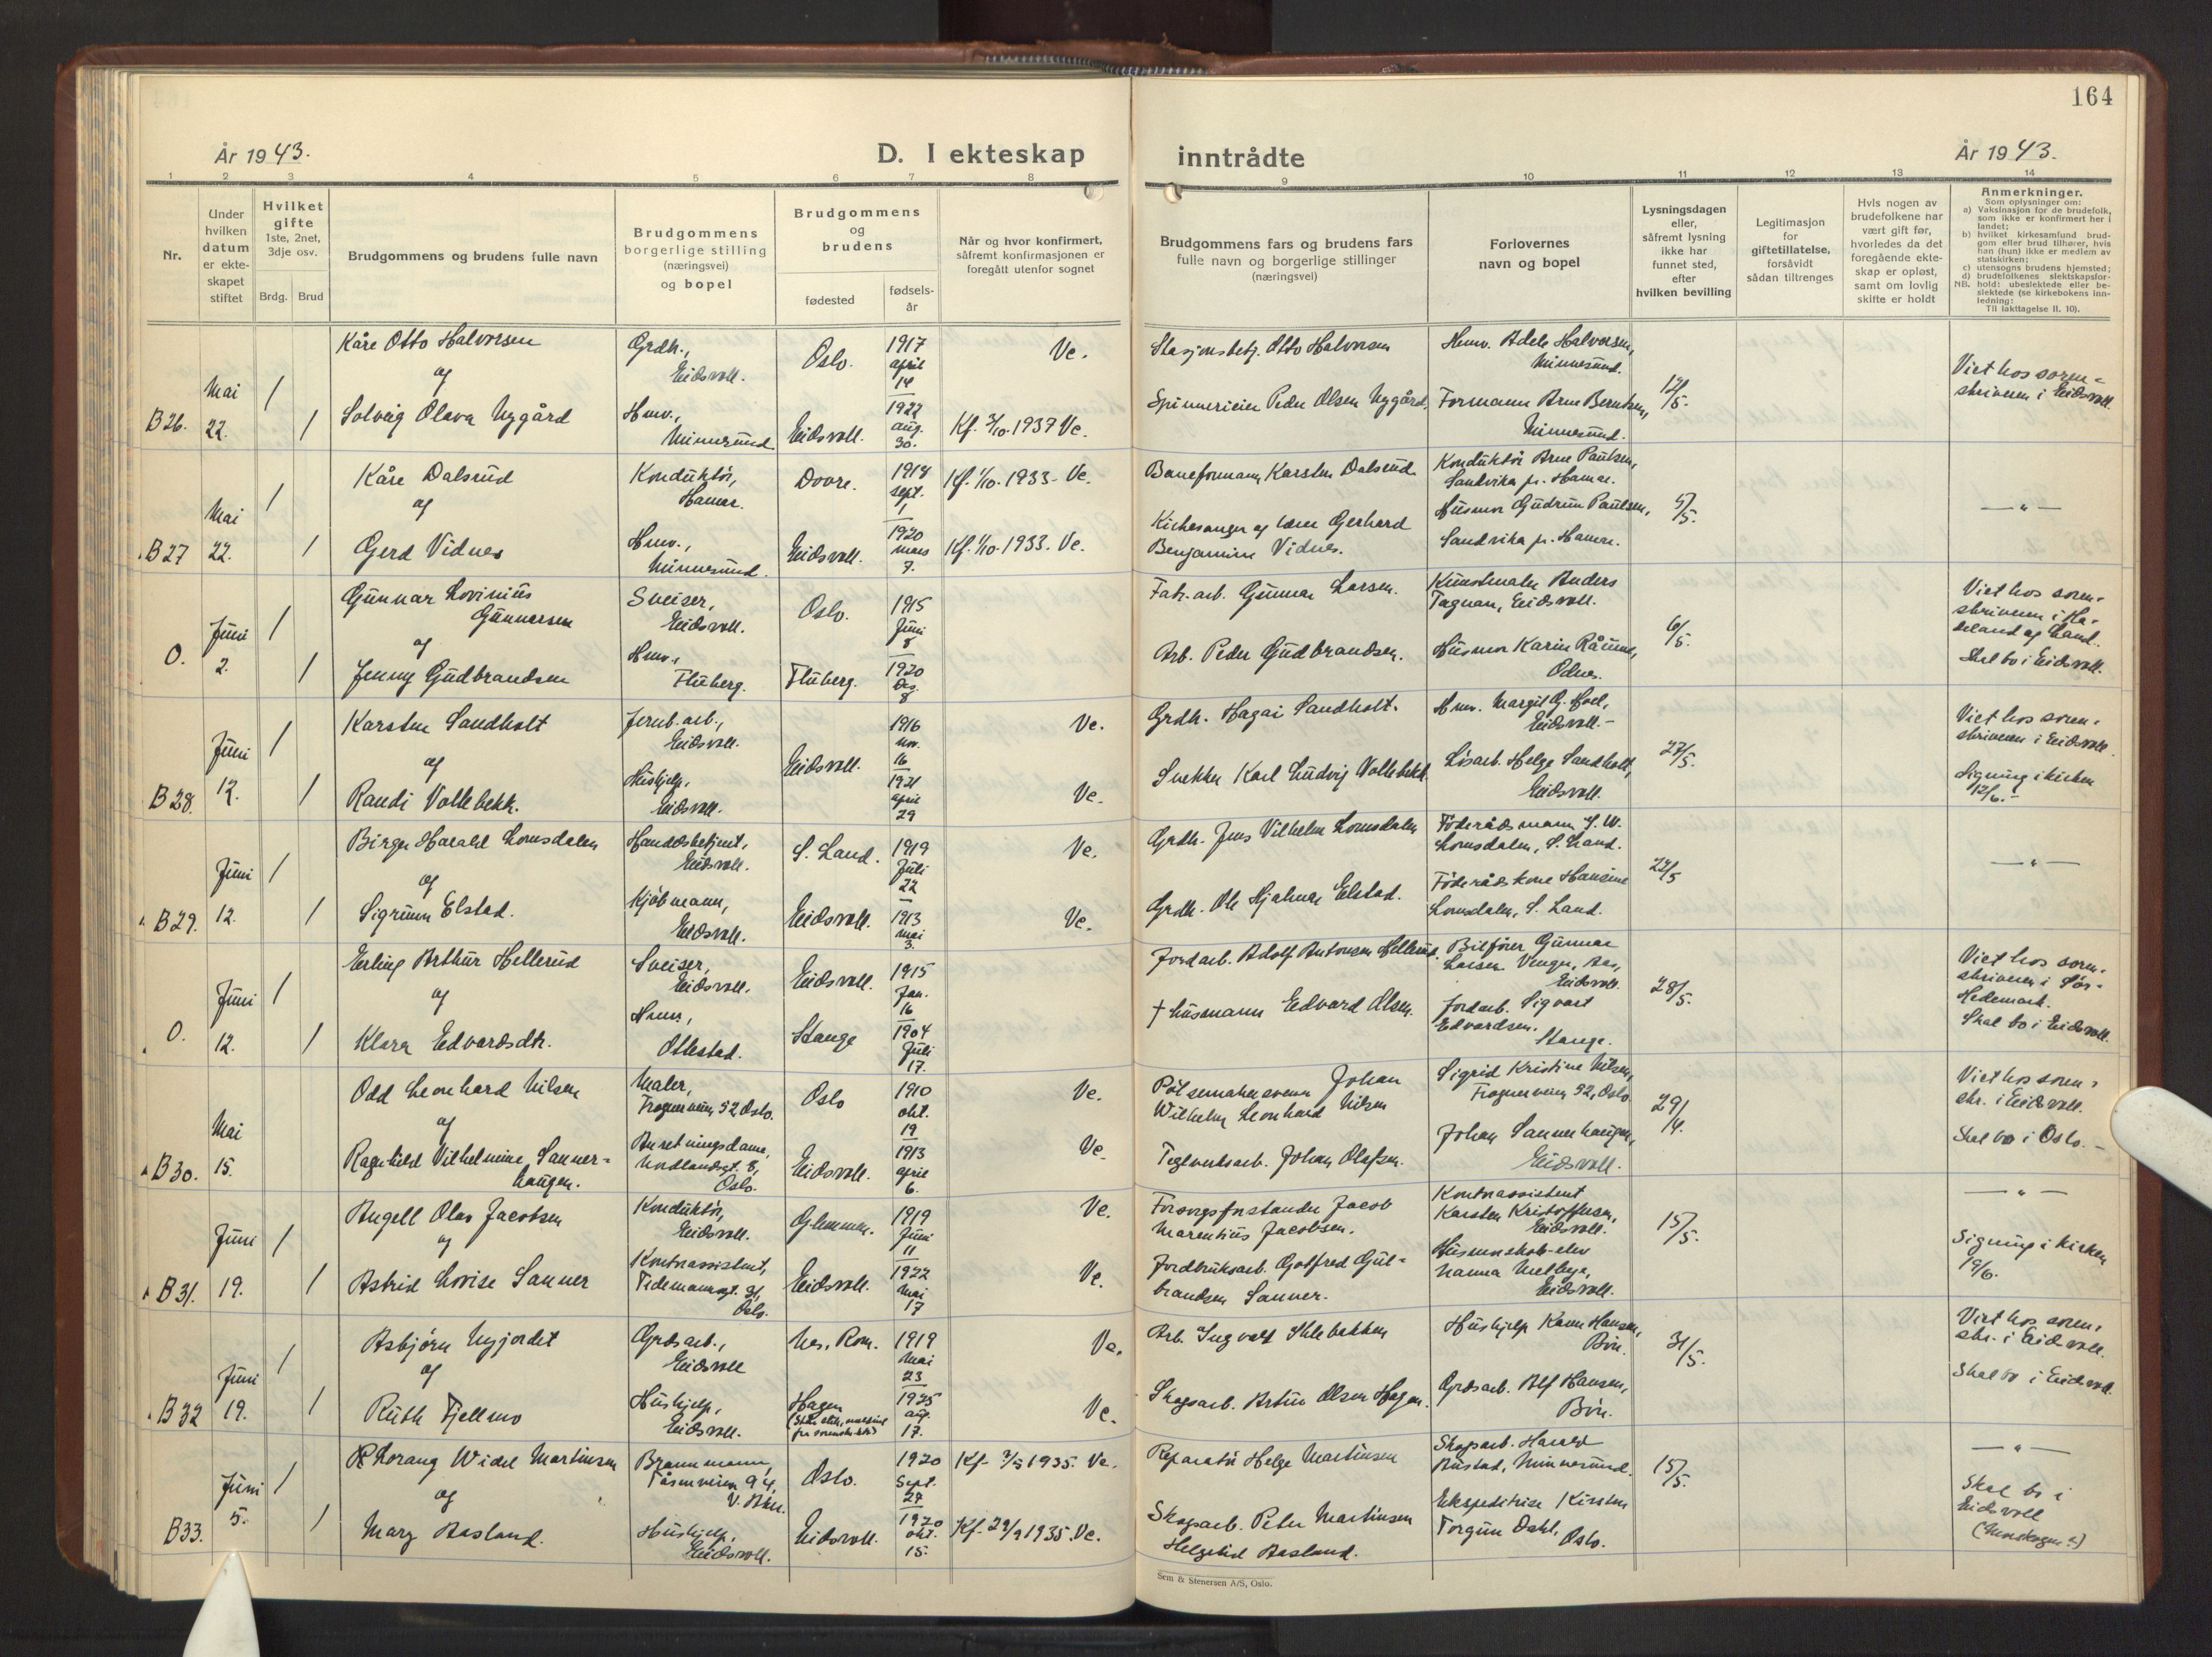 164
År 1943.
D. I ekteskap
inntrådte
År 1943.
1 2 3 4 5 6 7 8 9 10 11 12 13 14
Nr.
Under
hvilken
datum
er ekte-
skapet
stiftet
Hvilket
gifte
1ste, 2net,
3dje osv.
Brdg. Brud
Brudgommens og brudens fulle navn
Brudgommens
borgerlige stilling
(næringsvei)
og bopel
Brudgommens
og
brudens
fødested
fødsels-
år
Når og hvor konfirmert,
såfremt konfirmasjonen er
foregått utenfor sognet
Brudgommens fars og brudens fars
fulle navn og borgerlige stillinger
(næringsvei)
Forlovernes
navn og bopel
Lysningsdagen
eller,
såfremt lysning
ikke har
funnet sted,
efter
hvilken bevilling
Legitimasjon
for
giftetillatelse,
forsåvidt
sådan tiltrenges
Hvis nogen av
brudefolkene har
vært gift før,
hvorledes da det
foregående ekte-
skap er opløst,
samt om lovlig
skifte er holdt
Anmerkninger.
Som oplysninger om:
a) Vaksinasjon for de brudefolk,
som ikke er konfirmert her i
landet;
b) hvilket kirkesamfund brud-
gom eller brud tilhører, hvis
han (hun) ikke er medlem av
statskirken;
c) utensogns brudens hjemsted;
d) brudefolkenes slektskapsfor-
NB. hold: ubeslektede eller be-
slektede (se kirkebokens inn-
ledning:
Til iakttagelse II. 10).
B26.
Mai
22.
1
1
Kåre Otto Halvorsen
og
Solveig Olava Nygård
Grdb.,
Eidsvoll.
Hmv.,
Minnesund
Oslo.
Eidsvoll.
1917
april
14
1922
aug.
30.
Ve.
Kf. 3/10. 1937 Ve.
Stasjonsbetj. Otto Halvorsen
Spinnerieier Peder Olsen Nygård.
Hmv. Adele Halvorsen,
Minnesund.
Formann Arne Berntsen,
Minnesund.
12/5.
Viet hos soren-
skriveren i Eidsvoll.
B27
Mai
22.
1
1
Kåre Dalsrud
og
Gerd Vidnes
Konduktör,
Hamar.
Hmv.,
Minnesund.
Dovre.
Eidsvoll.
1918
sept.
1
1920
mars
7.
Kf. 1/10. 1933. Ve.
Kf. 1/10. 1933. Ve.
Baneformann Karsten Dalsrud
Kirkesanger og lærer Gerhard
Benjamin Vidnes.
Konduktör Arne Paulsen,
Sandvika pr. Hamar.
Husmor Gudrun Paulsen,
Sandvika pr. Hamar.
5/5.
— " —
O.
Juni
2.
1
1
Gunnar Lovinius
Gunnersen
og
Jenny Gudbrandsen
Sveiser,
Eidsvoll.
Hmv.,
Fluberg.
Oslo.
Fluberg.
1915
Juni
8
1920
Des.
8
Fab. arb. Gunnar Larsen.
Arb. Peder Gudbrandsen.
Kunstmaler Anders
Tagnan, Eidsvoll.
Husmor Karin Råund,
Odnes.
6/5.
Viet hos soren-
skriveren i Ha-
deland og Land.
Skal bo i Eidsvoll.
B28.
Juni
12.
1
1
Karsten Sandholt
og
Randi Vollebekk.
Jernb. arb.,
Eidsvoll.
Hushjelp,
Eidsvoll.
Eidsvoll.
1916
nov.
16
1921
april
29
Ve.
Ve.
Grdb. Hagai Sandholt.
Snekker Karl Ludvig Vollebekk.
Hmv. Margit G. Hoel,
Eidsvoll.-
Lösarb. Helge Sandholt,
Eidsvoll.
27/5.
Viet hos soren-
skriveren i Eidsvoll.
Signing i kirken
12/6.-
B29.
Juni
12.
1
1
Birger Harald Lomsdalen
og
Sigrunn Elstad.
Handelsbetjent,
Eidsvoll.
Kjöbmann,
Eidsvoll.
S. Land.
Eidsvoll.
1919
Juli
22
1913
mai
3.
Ve.
Ve.
Grdb. Jens Vilhelm Lomsdalen
Grdb. Ole Hjalmar Elstad.
Föderådsmann J. W.
Lomsdalen, S. Land.
Föderådskone Hansine
Lomsdalen, S. Land.
22/5
— " —
O.
Juni
12.
1
1
Erling Arthur Hellerud
og
Klara Edvardsdtr.
Sveiser,
Eidsvoll.
Hmv.,
Ottestad.
Eidsvoll.
Stange
1915
Jan.
16
1904
Juli
17.
Jordarb. Adolf Antonsen Hellerud.
† Husmann Edvard Olsen.
Bilfører Gunnar
Larsen Venger, Aas,
Eidsvoll.
Jordarb. Sigvart
Edvardsen.
Stange.
28/5.
Viet hos soren-
skriveren i Sör-
Hedemark.
Skal bo i Eidsvoll.
B30.
Mai
15.
Odd Leonhard Nilsen
og
Ragnhild Vilhelmine Sanner-
haugen.
Maler,
Frognerveien 52 Oslo.
Anretningsdame,
Oslo.
Oslo
Eidsvoll.
1910
okt.
19
1913
april
6.
Ve.
Ve.
Pölsemakersvenn Johan
Wilhelm Leonhard Nilsen
Teglverksarb. Johan Olafsen.
Sigrid Kristine Nilsen,
Frognerveien 52, Oslo
Johan Sannerhaugen,
Eidsvoll.
29/4.
Viet hos soren-
skr. i Eidsvoll.
Skal bo i Oslo.-
B31.
Juni
19.
1
1
Angell Olav Jacobsen
og
Astrid Lovise Sanner
Konduktör,
Eidsvoll.
Kontorassistent,
Tidemannsgt. 31,
Oslo.
Glemmen.
Eidsvoll.
1919
Juni
11
1922
Mai
17
Ve.
Ve.
Forsorgsforstander Jacob
Marentius Jacobsen.
Jordbruksarb. Gotfred Gul-
brandsen Sanner.
Kontorassistent
Karsten Kristoffersen,
Eidsvoll.
Husmorskole-elev
Nanna Melbye,
Eidsvoll.
15/5.
— " —
Signing i kirken
19/6.
B32
Juni
19.
1
1
Asbjørn Nyjordet
og
Ruth Fjellmo
Grdsarb.,
Eidsvoll
Hushjelp,
Eidsvoll.
Nes, Rom.
Hagen
1919
Mai
23
1925
aug.
17.
Ve.
Ve.
Arb. Ingvald Shlebakken
Skogsarb. Artur Olsen Hagen.
Hushjelp Karin Hansen,
Bön.
Grdsarb. Alf Hansen,
Bön.
31/5.
Viet hos soren-
skr. i Eidsvoll.
Skal bo i Eidsvoll
B33.
Juni
5.
1
1
Thorang Widel Martinsen
og
Mary Aasland.
Brannmann,
Tåsenveien 94,
V. Aker.
Hushjelp,
Eidsvoll.
Oslo.
Eidsvoll.
1920
Sept.
27
1920
okt.
15.
Kf. 3/5 1935. Ve.
Kf. 29/9 1935. Ve.
Reparatör Helge Martinsen
Skogsarb. Peter Martinsen
Aasland.
Skogsarb. Harald
Rustad, Minnesund.
Ekspeditrise Kirsten
Torgun Dahl,
Oslo.
15/5.
— " —
Skal bo i
Eidsvoll
Sem & Stenersen A/S, Oslo.